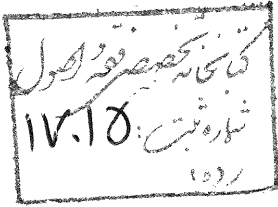 کتابخانه تخصصی فقه و اصول
شماره ثبت: ۱۷۰۱۵
رده: